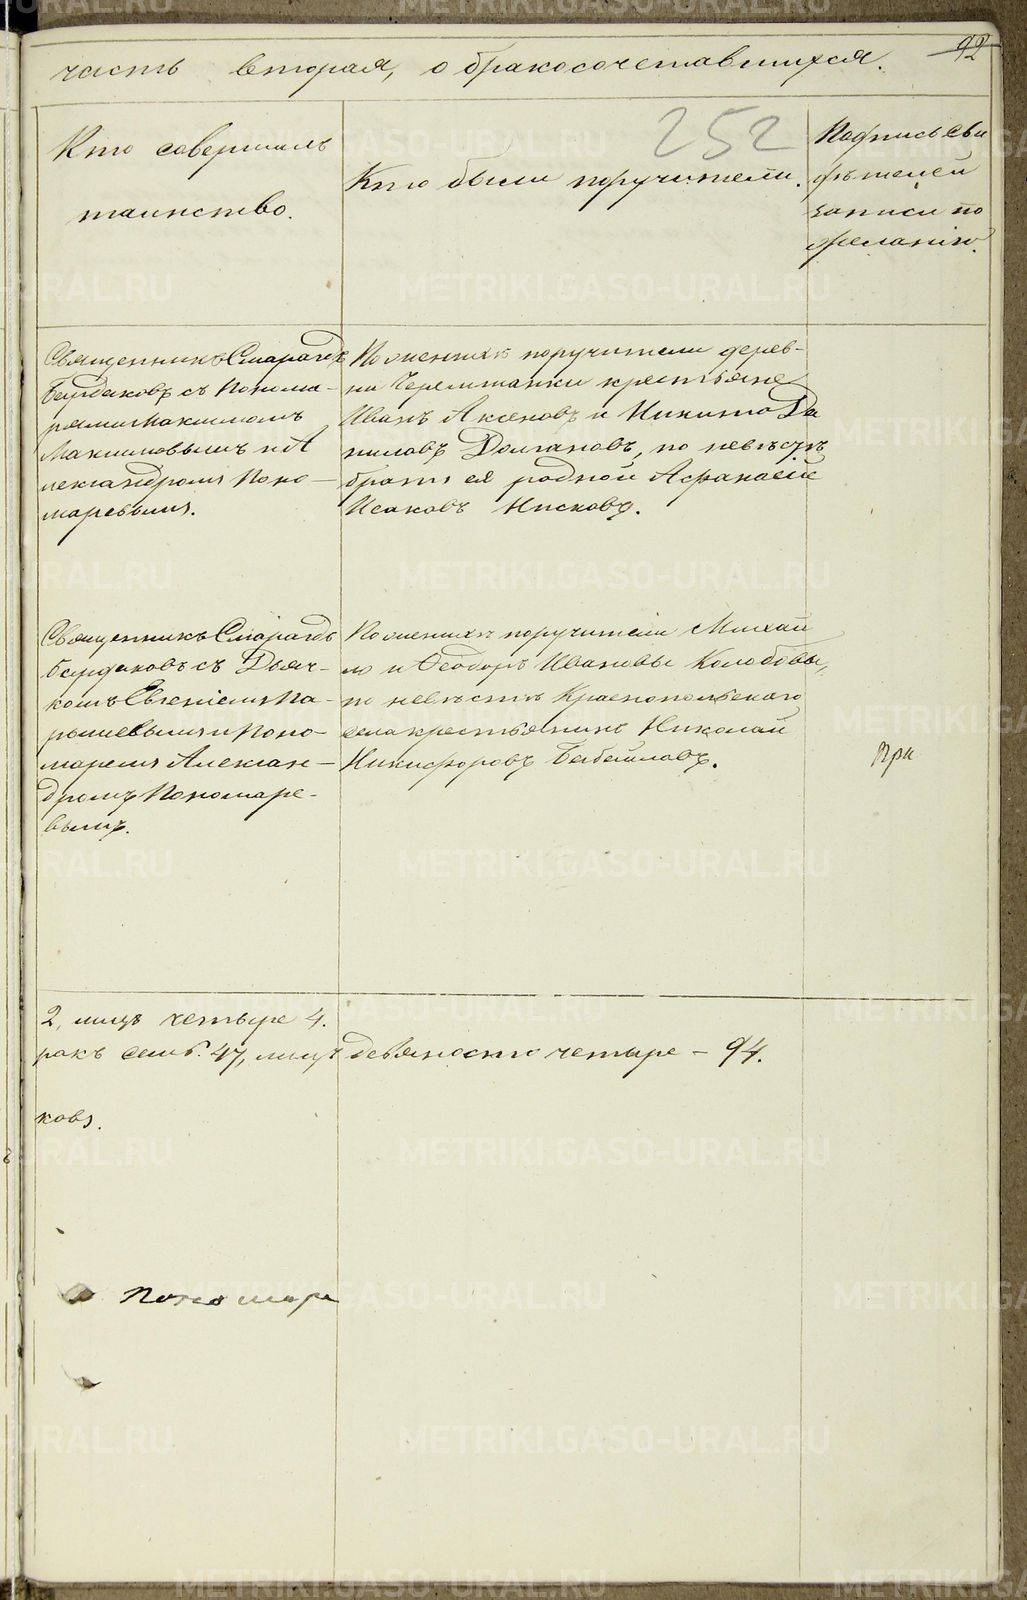 92
часть вторая, о бракосочетавшихся.
252
Кто совершилъ
таинство.
Кто были поручители.
Подпись сви
дѣтелей
записи по
желанію.
Священникъ Смарагдъ
Бурдаковъ съ Понома-
ремъ Максимомъ
Максимовымъ и А
лександромъ Поно-
маревымъ.
По женихѣ поручители дерев-
ни Черемшанки крестьяне
Иванъ Аксеновъ и Никита Да
ниловъ Долгановъ, по невѣстѣ
братъ ея родной Афанасій
Исаковъ
Священникъ Смарагдъ
Бурдаковъ съ Дьяч-
комъ Евгеніемъ Па-
рышевымъ и Поно-
маремъ Алексан-
дромъ Пономаре-
вымъ.
По женихѣ поручители Михай
ло и Ѳеодоръ Ивановы Колобовы,
по невѣстѣ Краснопольскаго
села крестьянинъ Николай
Никифоровъ
При
2, лицъ четыре 4.
ракъ семь. 47, лицъ девяносто четыре - 94.
ковъ.
Пономаре
METRIKI.GASO-URAL.RU